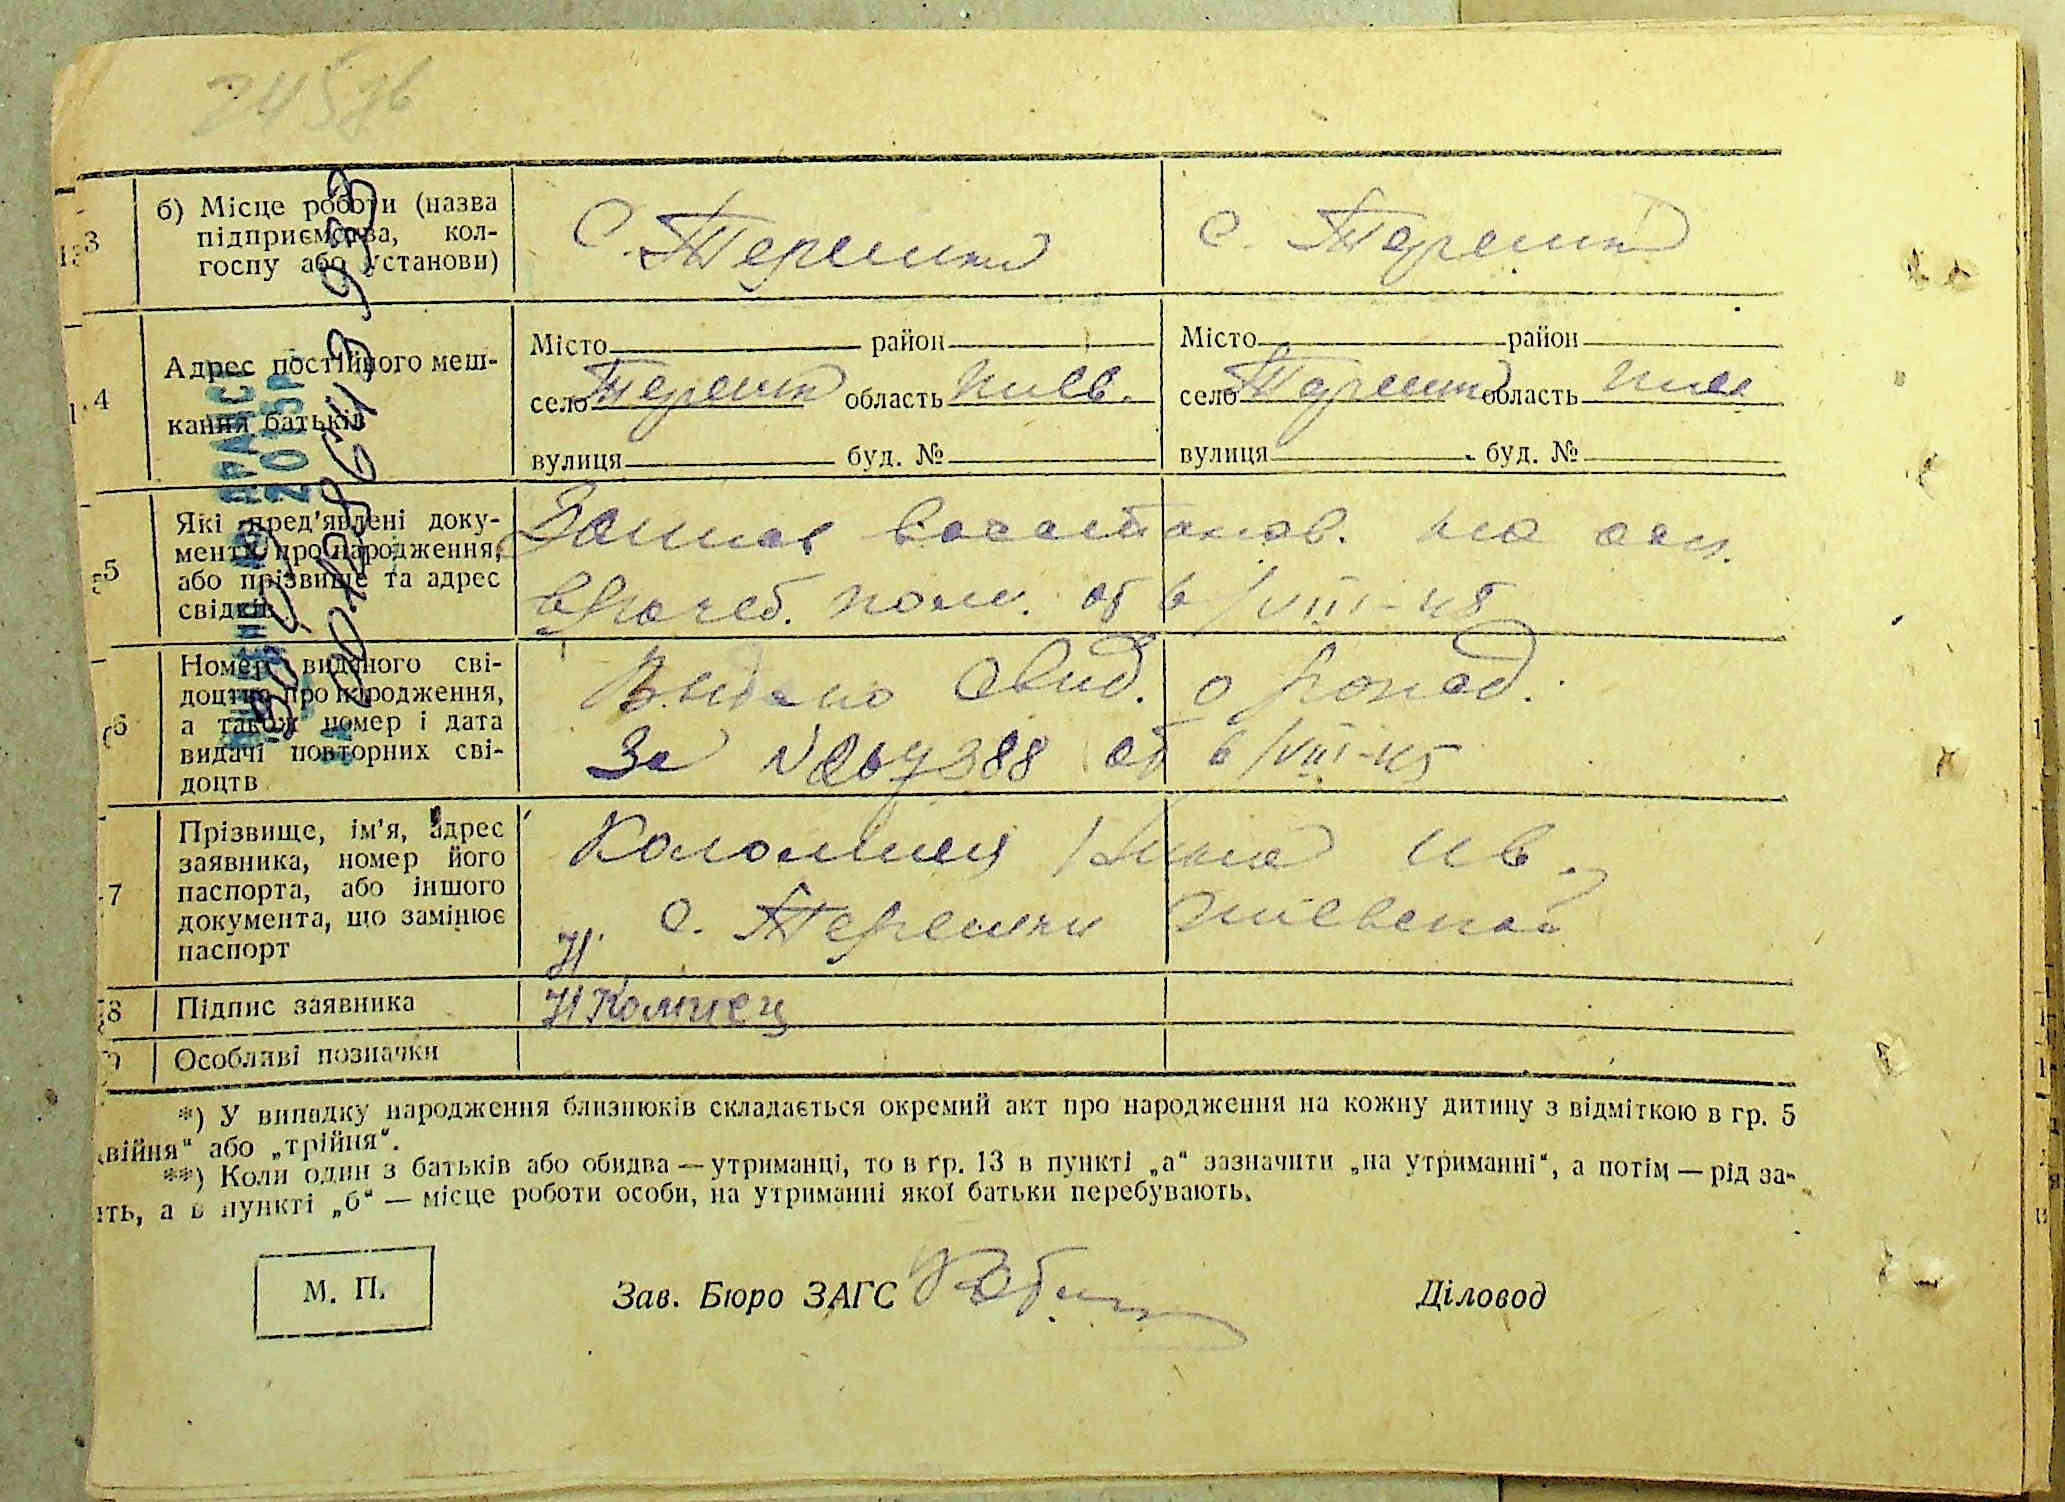 13
б) Місце роботи (назва
підприємства, кол-
госпу або установи)
С. Терешки
с. Терешки
14
Адрес постійного меш-
кання батьків
Місто район
село Терешки область Киев.
вулиця буд. №
Місто район
село Терешки область Киев
вулиця буд. №
5
Які пред'явлені доку-
менти про народження,
або прізвище та адрес
свідків
Запись восстанов. на осн.
врачеб. ком. от 6/VIII-45
6
Номер виданого сві-
доцтва про народження,
а також номер і дата
видачі повторних сві-
доцтв
Выдано свид. о рожд.
За № 267388 от 6/VIII-45
7
Прізвище, ім'я, адрес
заявника, номер його
паспорта, або іншого
документа, що замінює
паспорт
Коломиец Нина Ив.
с. Терешки Киевской
8
Підпис заявника
Особливі позначки
*) У випадку народження близнюків складається окремий акт про народження на кожну дитину з відміткою в гр. 5
війня" або „трійня".
**) Коли один з батьків або обидва — утриманці, то в гр. 13 в пункті „а" зазначити „на утриманні", а потім — рід за-
ять, а в пункті „б" — місце роботи особи, на утриманні якої батьки перебувають.
М. П.
Зав. Бюро ЗАГС
Діловод